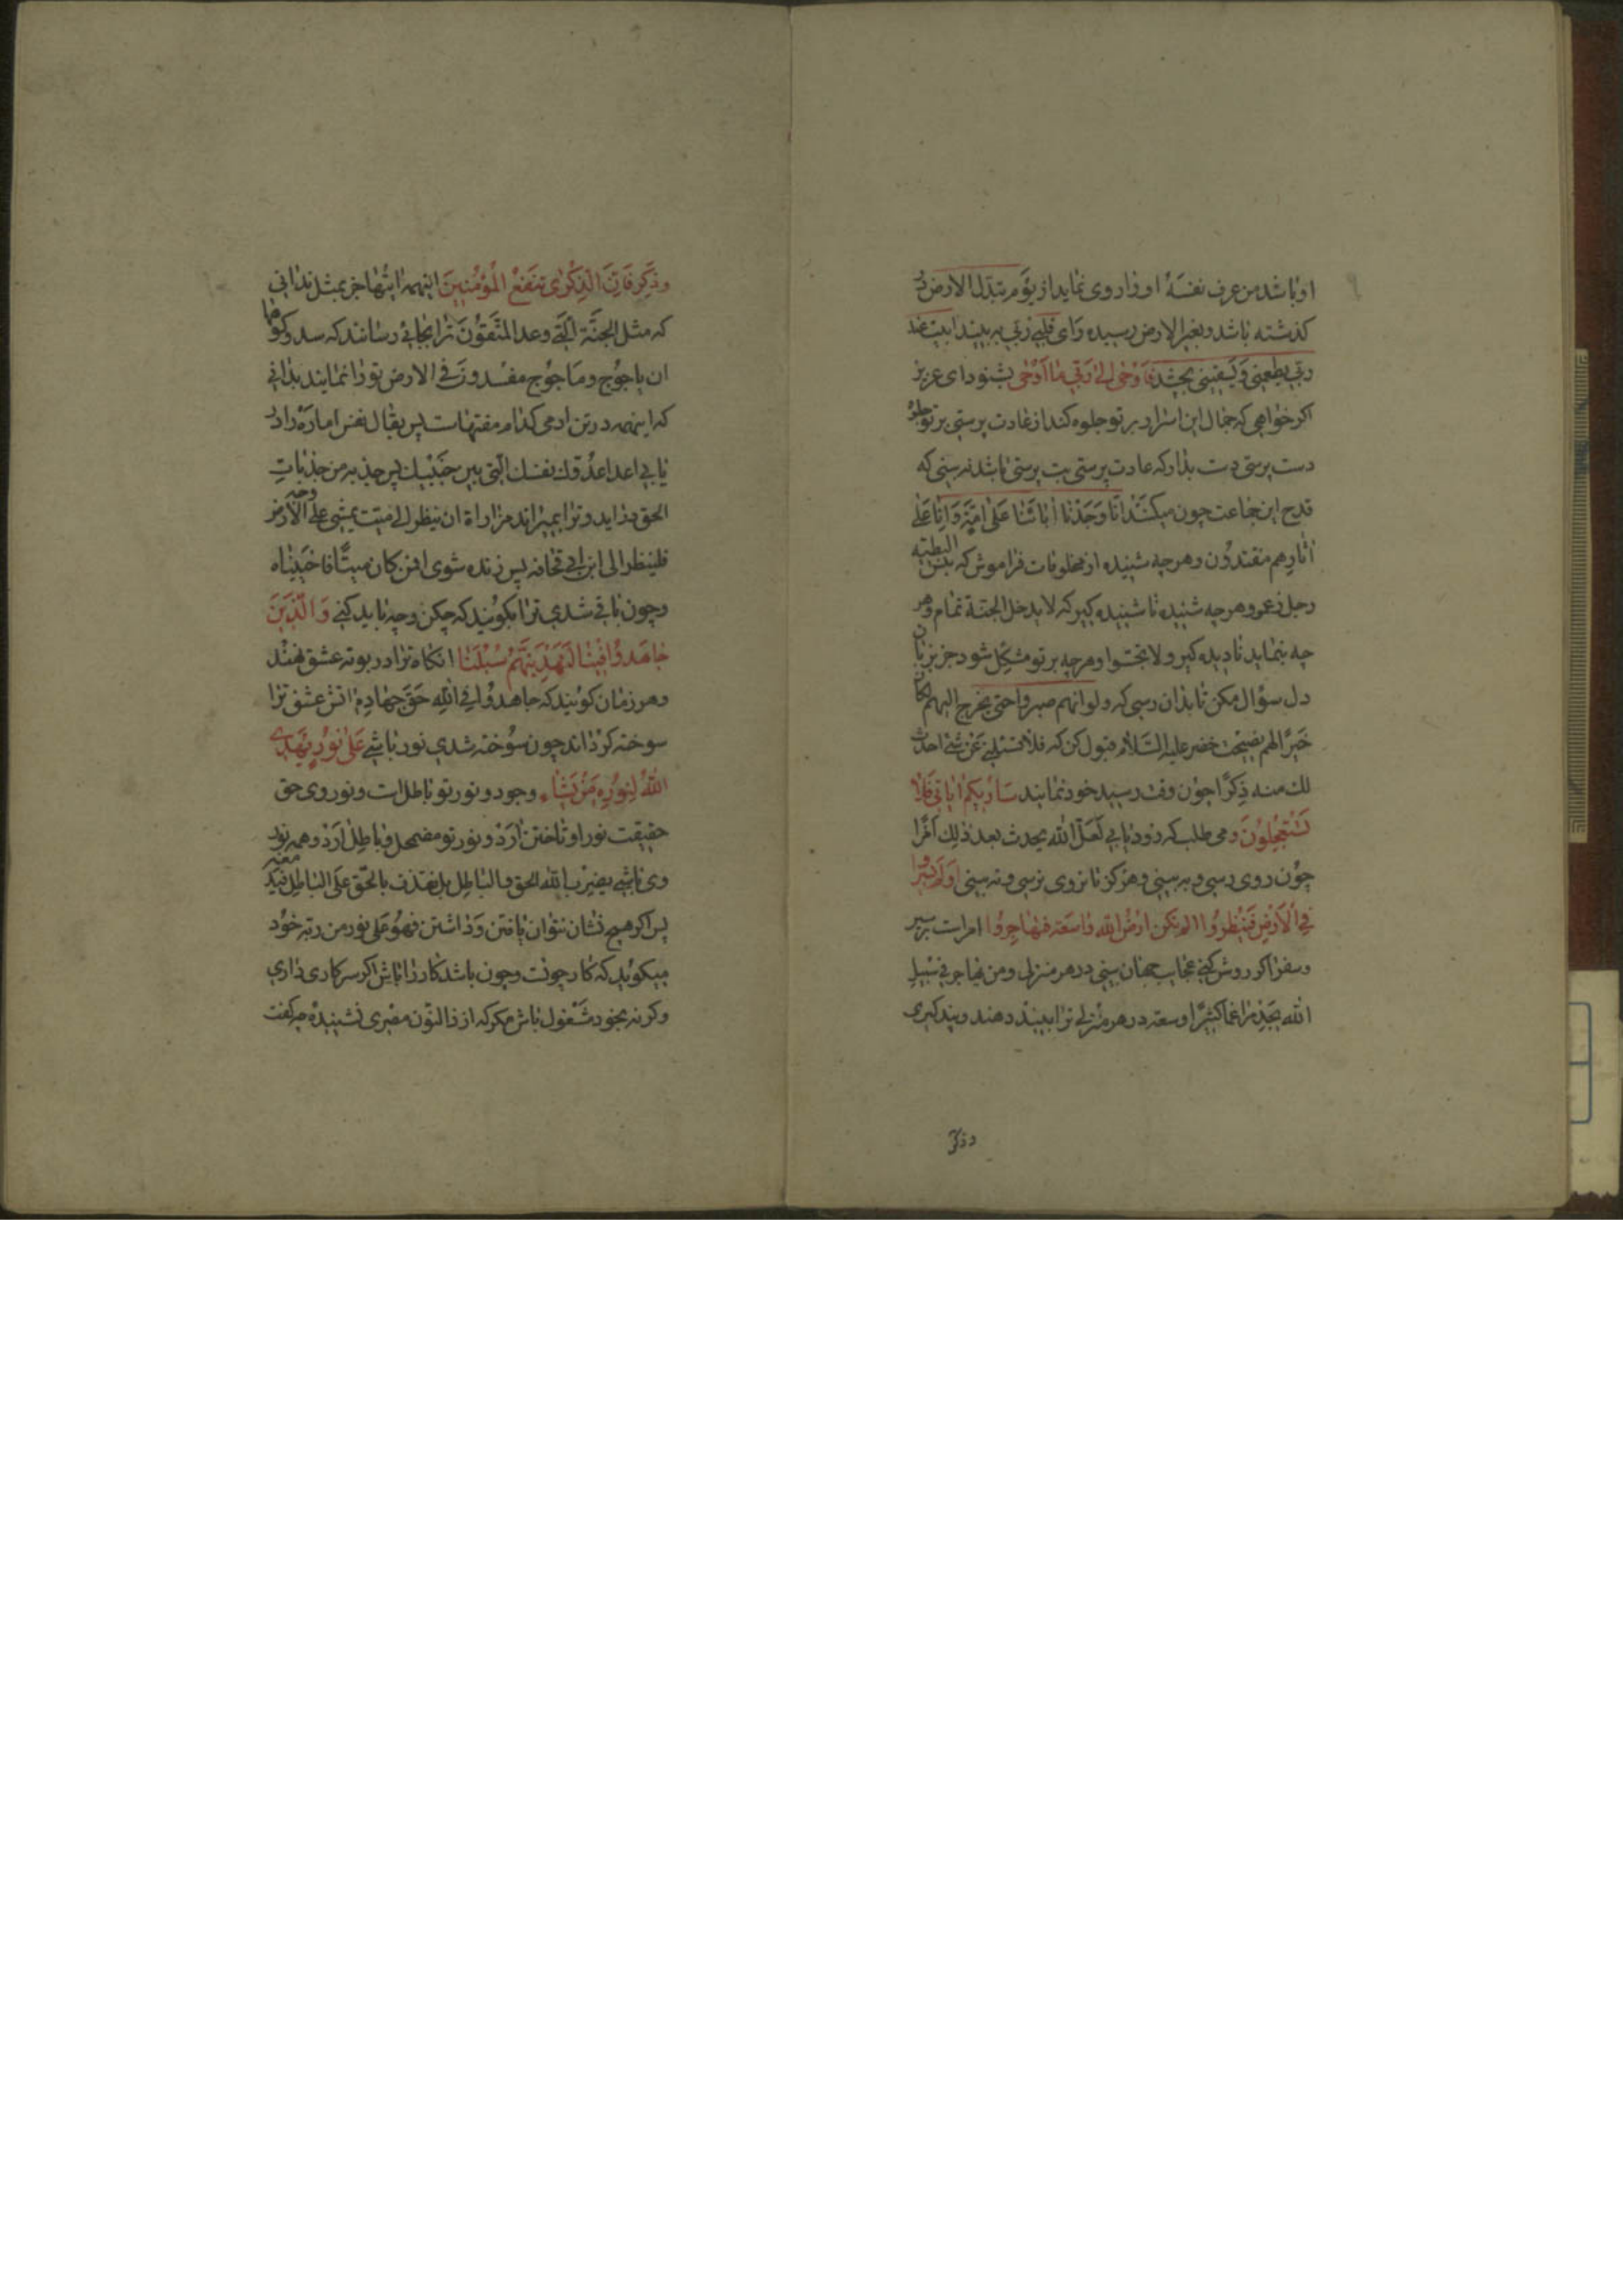 او باشد من عرف نفسه او را روی نماید از یوم تبدل الارض در
کذشته باشد و بغیر الارض رسیده رای قلبی ربی به بیند ابیت عند
ربی یطعمنی و یسقینی بچشد فاوحی الی ربی ما اوحی بشنود ای عزیز
اکر خواهی که جمال این اسرار بر تو جلوه کند از عادت پرستی بر تو جلوه
دست پرستی دست بدار که عادت پرستی بت پرستی باشد نه بینی که
قدح این جماعت چون میکند انا وجدنا ابائنا علی امة و انا علی
اثارهم مقتدون و هرچه شنیده از مخلوقات فراموش که بئس المطیه
رجل زعمو و هرچه شنیده ناشنیده کیر که لا یدخل الجنة نمام و هر
چه بنماید نادیده کیر و لا تجسسوا و هرچه بر تو مشکل شود جز بزبان
دل سؤال مکن تا بدان رسی که و لو انهم صبروا حتی تخرج الیهم لکان
خیرا لهم نصیحت خضر علیه السلام قبول کن که فلا تسئلنی عن شئ احدث
لک منه ذکرا چون وقت رسید خود نمایند ساریکم ایاتی فلا
تستعجلون و می طلب که زود یابی لعل الله یحدث بعد ذلک امرا
چون روی رسی و به بینی و هرکز تا نروی نرسی و نه بینی اولم یسیروا
فی الارض فینظروا الم تکن ارض الله واسعة فتهاجروا امراست بر سیر
و سفر اکر روش کنی عجایب جهان بینی در هر منزلی و من یهاجر فی سبیل
الله یجد مراغما کثیرا و سعة در هر منزلی ترا پند دهند و پند کیری
وذکر
وذکر فان الذکری تنفع المؤمنین اینهمه اینها جز بمثل ندانی
که مثل الجنة التی وعد المتقون ترا بجائی رسانند که سد و کوهها
ان یاجوج و ماجوج مفسدون فی الارض تو را نمایند بدانی
که اینهمه در تن ادمی کدام مفتهاست پس بقال نفس اماره را در
یابی اعدا عدوک نفسک التی بین جنبیک پس جذبه من جذبات
الحق دراید و ترا بمیراند من اراد ان ینظر الی میت یمشی علی وجه الارض
فلینظر الی ابن ابی قحافه پس زنده شوی افمن کان میتا فاحییناه
و چون باقی شدی ترا بکویند که چکن و چه باید کنی والذین
جاهدوا فینا لنهدینهم سبلنا انکاه ترا در بوته عشق نهند
و هر زمان کویند که جاهدوا فی الله حق جهاده تا اتش عشق ترا
سوخته کرداند چون سوخته شدی نور باشی علی نور یهدی
الله لنوره من یشاء وجود و نور تو باطل است و نور وی حق
حقیقت نور او تاختن ارد و نور تو مضمحل و باطل ارد و همه نور
وی باشی یضرب الله الحق و الباطل بل نقذف بالحق علی الباطل فیدمغه
پس اکر هیچ نشان نتوان یافتن و داشتن فهو علی نور من ربه خود
میکوید که کار چونست و چون باشد کار را باش اکر سر کاری داری
و کر نه بخود مشغول باش مکر که از ذالنون مصری نشنیده چه کفت